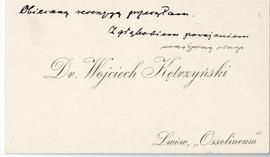 Obiecaną recenzyę przesyłam.
Z głębokiem poważaniem
Dr. Wojciech Kętrzyński
Lwów, „Ossolineum”